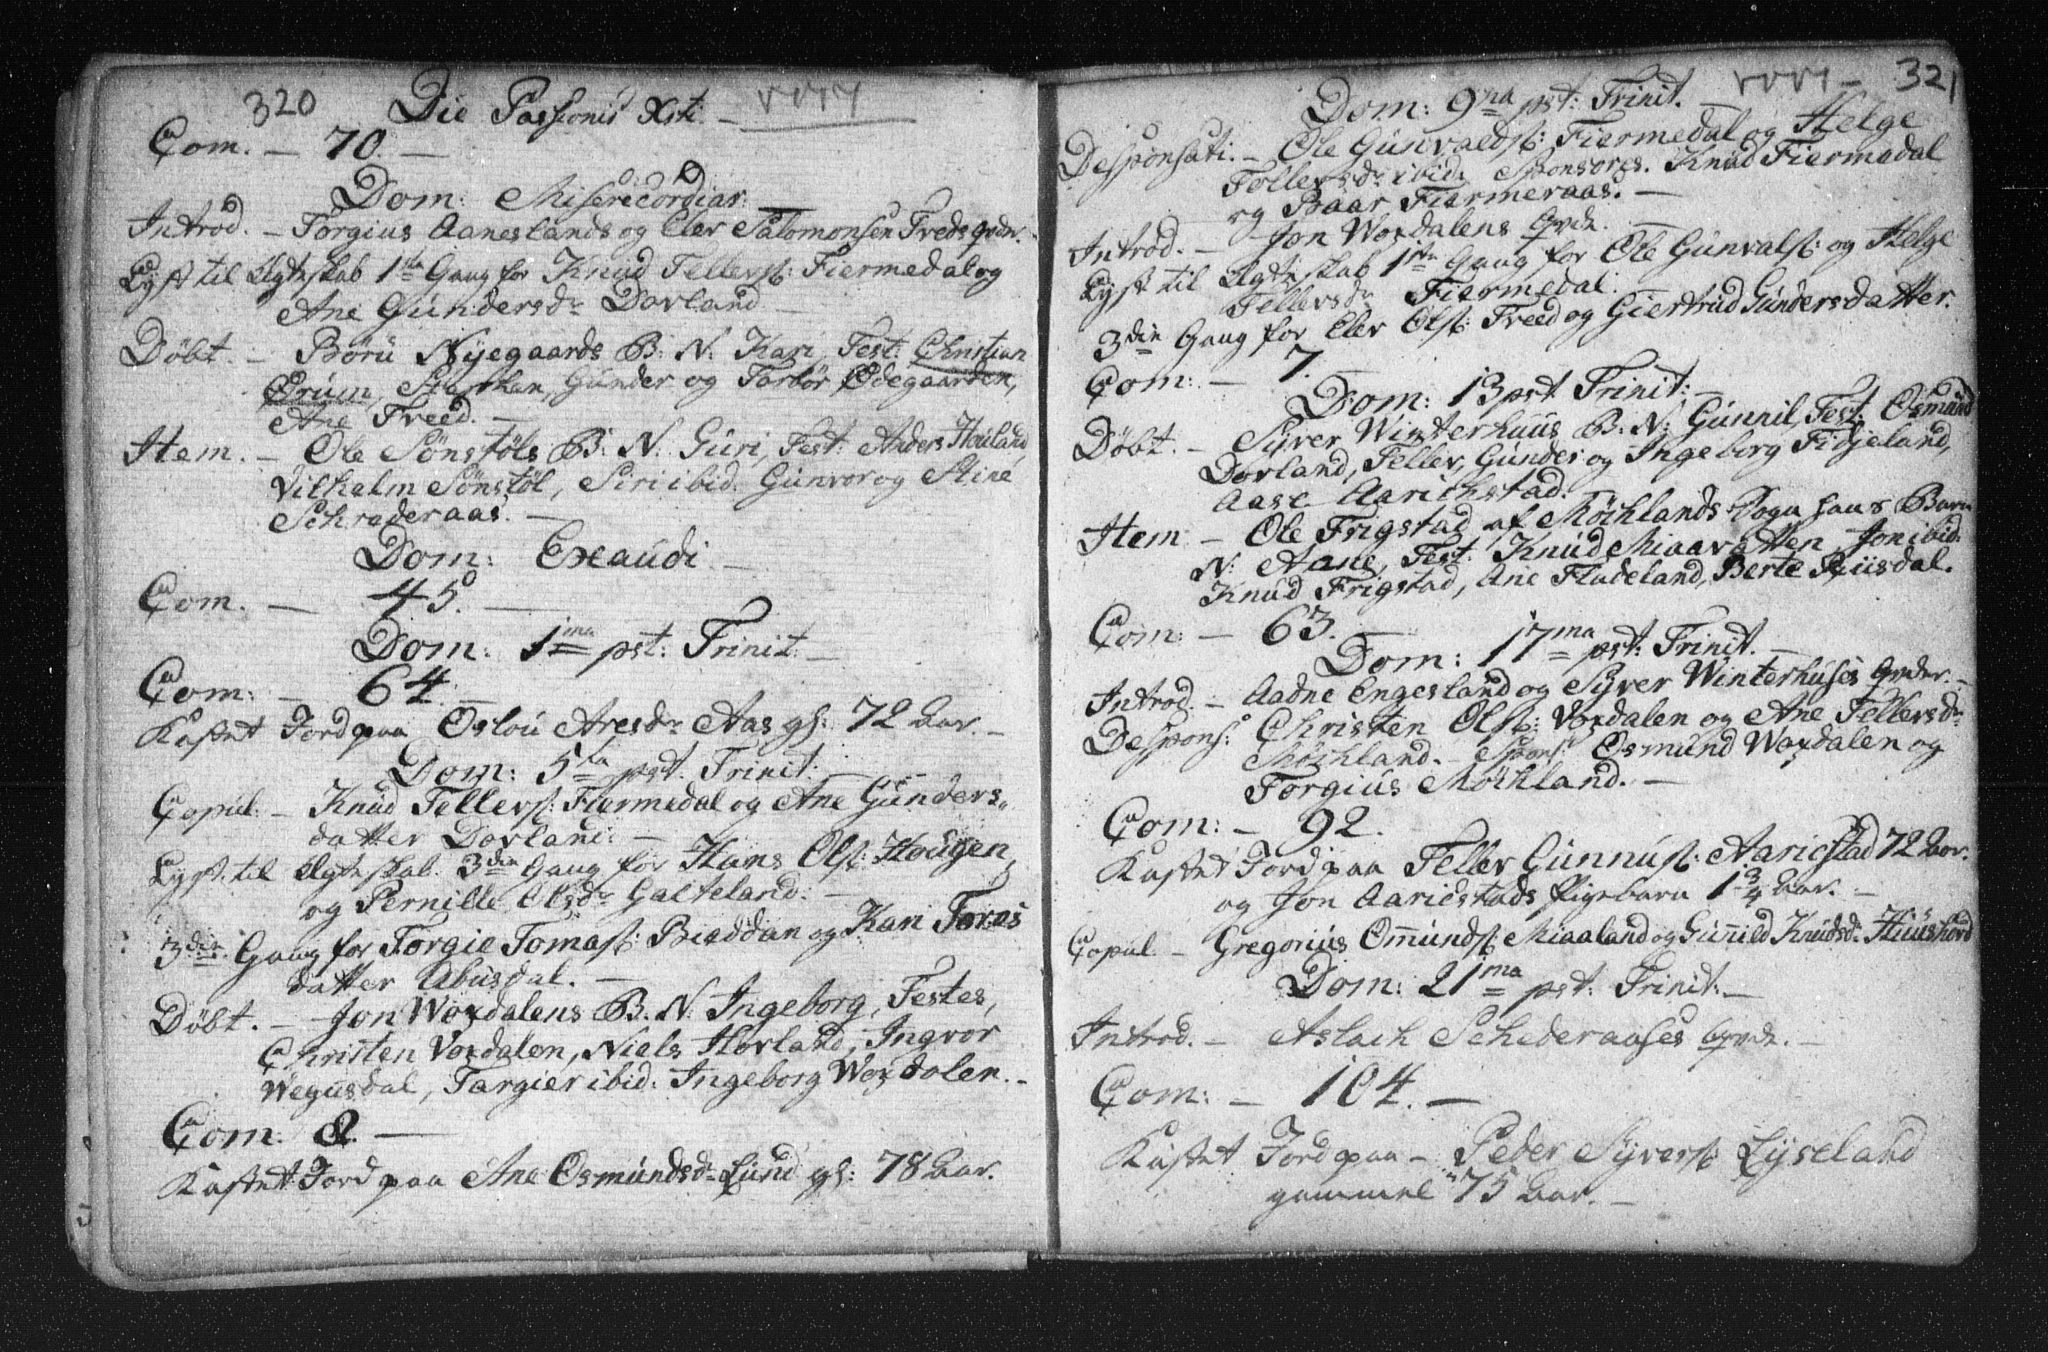 320 Die Passionis Xsti
Com. — 70. —
Dom: Misericordias
Introd. — Torgius Aaneslands og Eler Salomonsen Treds qvdr.
Lyst til Ægteskab 1ste Gang for Knud Tellefs: Fiermedal og
Ane Gundersdr Dovland —
Döbt. — Börü Nyegaards B. N: Kari, Test: Christian
Örum, Gunder og Tarbör Ödegaarden,
Ane Freed. —
Hem. — Ole Sönstöls B: N. Guri, Test: Anders Houland
Vilhelm Sönstöl, Siri ibid. Gunvor og Stine
Schraderaas. —
Dom: Exaudi —
Com. — 45. —
Dom: 1ma pst: Trinit: —
Com: — 64. —
Kastet Jord paa Oslou Aresdr Aas gl: 72 Aar. —
Dom: 5ta pst: Trinit:
Copul. — Knud Tellefs: Fiermedal og Ane Gunders-
datter Dovland: —
Lyst til Ægteskab. 3die Gang for Hans Ols: Hougen
og Pernille Olsdr Galteland: —
3die Gang for Torgie Tomas: Bieddan og Kari Toras
datter Abusdal. —
Döbt. — Jon Woxdalens B. N: Ingeborg, Testes,
Christen Voxdalen, Niels Hovland, Ingvor
Wegusdal, Targier ibid: Ingeborg Woxdalen. —
Com: 8. —
Kastet Jord paa Ane Osmundsdr Lund gl: 78 Aar.
321
Dom: 9na pst: Trinit. —
Desponsati. — Ole Gunvalds: Fiermedal og Helge
Tellefsdr ibid: Sponsores. Knud Fiermedal
og Baar Fiermeraas. —
Introd. — Jon Woxdalens qvde. —
Lyst til Ægteskab 1ste Gang for Ole Gunvals: og Helge
Tellefsdr Fiermedal:
3die Gang for Eler Ols: Freed og Giertrud Gundersdatter.
Com: — 7.
Dom: 13 pst Trinit: —
Döbt. — Syver Winterhuus B: N: Gunnil, Test: Osmund
Dovland, Tellef, Gunder og Ingeborg Fidjeland,
Aase Aarichstad.
Hem — Ole Frigstad af Möchlands Sogn hans Barn
N: Aane, Test: Knud Miaavatten Jon ibid:
Knud Frigstad, Ane Fladeland, Berte Riisdal.
Com: — 63.
Dom: 17ma pst: Trinit. —
Introd. — Aadne Engesland og Syver Winterhuses qvdr. —
Despons: Christen Ols: Voxdalen og Ane Tellefsdr
Möchland. — Spons: Osmund Woxdalen og
Torgius Möchland. —
Com: — 92.
Kastet Jord paa Tellef Gunnus: Aaricstad 72 Aar.
og Jon Aaricstads Pigebarn 1 3/4 Aar. —
Copul — Gregorius Omunds: Miaaland og Gunild Knudsdr Huusford
Dom: 21ma pst: Trinit: —
Introd. — Aslach Schederaases qvde. —
Com: — 104. —
Kastet Jord paa — Peder Syvers: Lyseland
gammel 75 Aar. —